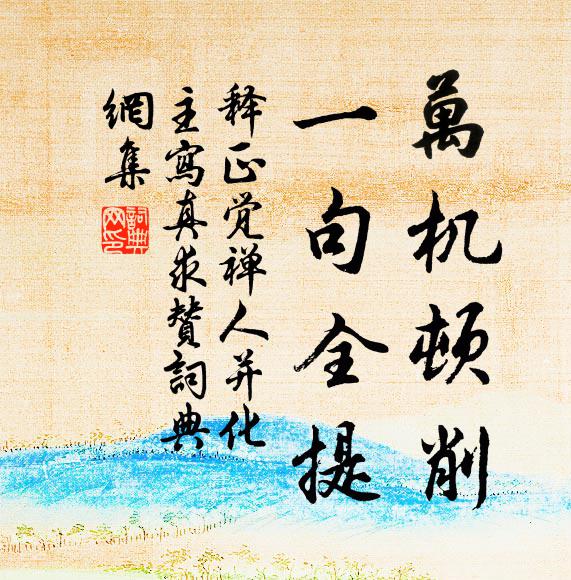 萬机顿削
一句全提
释正觉禅人并化
主寫真求赞詞典
網集
詞典
网印